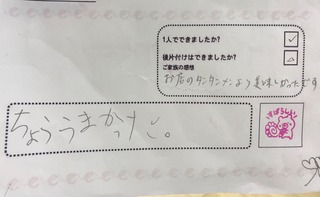 1人でできましたか?
後片付けはできましたか?
ご家族の感想
お店のタンタンメンより美味しかったです
ちょううまかったど。
すばらしい